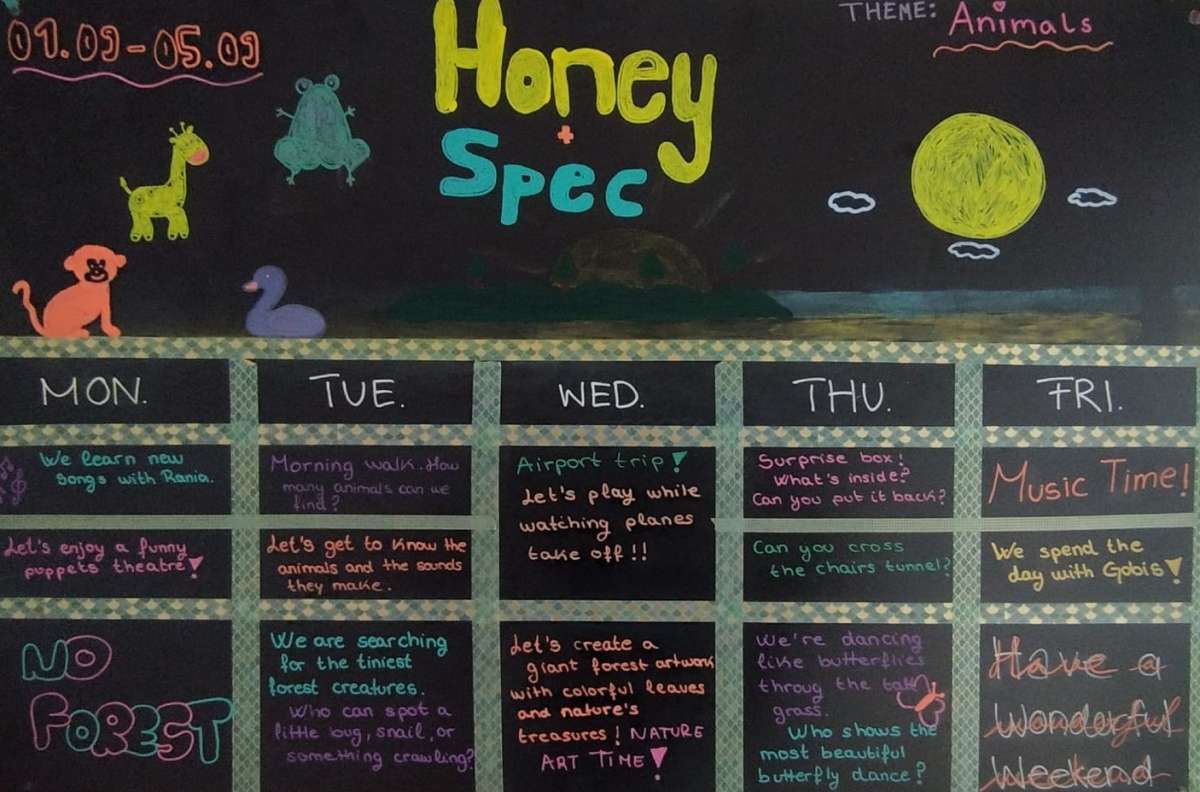 01.09-05.09
Honey
+
Spec
THEME: Animals
MON.
TUE.
WED.
THU.
FRI.
We learn new
songs with Rania.
Morning walk. How
many animals can we
find?
Airport trip!
Let's play while
watching planes
take off!!
Surprise box!
What's inside?
Can you put it back?
Music Time!
Let's enjoy a funny
puppets theatre!
Let's get to know the
animals and the sounds
they make.
Can you cross
the chairs tunnel?
We spend the
day with Gobis!
NO
FOREST
We are searching
for the tiniest
forest creatures.
Who can spot a
little bug, snail, or
something crawling?
Let's create a
giant forest artwork
with colorful leaves
and nature's
treasures! NATURE
ART TIME!
We're dancing
like butterflies
throug the tall
grass.
Who shows the
most beautiful
butterfly dance?
Have a
wonderful
Weekend